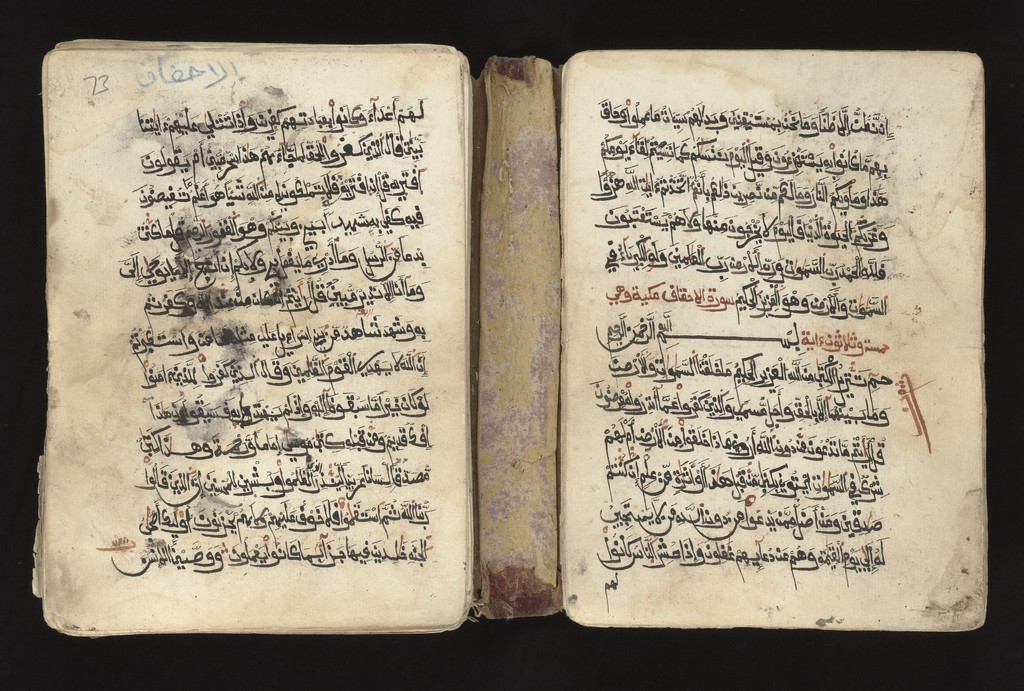 إن نظن إلا ظنا وما نحن بمستيقنين وبدا لهم سيئات ما عملوا وحاق
بهم ما كانوا به يستهزءون وقيل اليوم ننسيكم كما نسيتم لقاء يومكم
هذا ومأويكم النار وما لكم من نصرين ذلكم بأنكم اتخذتم ءايت الله هزؤا
وغرتكم الحيوة الدنيا فاليوم لا يخرجون منها ولا هم يستعتبون
فلله الحمد رب السموت ورب الأرض رب العلمين وله الكبرياء في
السموت والأرض وهو العزيز الحكيم سورة الاحقاف مكية وهي
خمس وثلاثون ءاية بسم الله الرحمن الرحيم
حم تنزيل الكتب من الله العزيز الحكيم ما خلقنا السموت والأرض
وما بينهما إلا بالحق وأجل مسمى والذين كفروا عما أنذروا معرضون
قل أرءيتم ما تدعون من دون الله أروني ماذا خلقوا من الأرض أم لهم
شرك في السموت ايتوني بكتب من قبل هذا أو أثرة من علم إن كنتم
صدقين ومن أضل ممن يدعوا من دون الله من لا يستجيب
له إلى يوم القيمة وهم عن دعائهم غفلون وإذا حشر الناس كانوا
لهم
73
الاحقاف
لهم أعداء وكانوا بعبادتهم كفرين وإذا تتلى عليهم ءايتنا
بينت قال الذين كفروا للحق لما جاءهم هذا سحر مبين أم يقولون
افتريه قل إن افتريته فلا تملكون لي من الله شيئا هو أعلم بما تفيضون
فيه كفى به شهيدا بيني وبينكم وهو الغفور الرحيم قل ما كنت
بدعا من الرسل وما أدري ما يفعل بي ولا بكم إن أتبع إلا ما يوحى إلي
وما أنا إلا نذير مبين قل أرءيتم إن كان من عند الله وكفرتم
به وشهد شاهد من بني إسراءيل على مثله فئامن واستكبرتم
إن الله لا يهدي القوم الظلمين وقال الذين كفروا للذين ءامنوا
لو كان خيرا ما سبقونا إليه وإذ لم يهتدوا به فسيقولون هذا
إفك قديم ومن قبله كتب موسى إماما ورحمة وهذا كتب
مصدق لسانا عربيا لتنذر الذين ظلموا وبشرى للمحسنين إن الذين قالوا
ربنا الله ثم استقموا فلا خوف عليهم ولا هم يحزنون أولئك أصحب
الجنة خلدين فيها جزاء بما كانوا يعملون ووصينا الإنسن